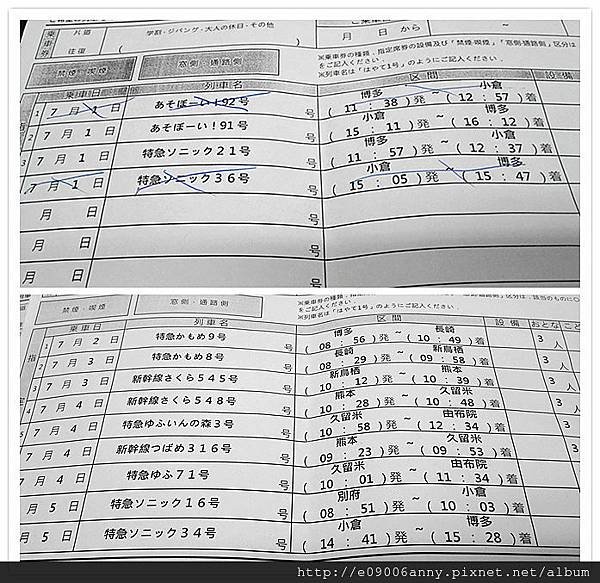 乗車券
片道
往復
学割・ジパング・大人の休日・その他
月 日 から ～
禁煙・喫煙
窓側・通路側
※乗車券の種類、指定席券の設備及び「禁煙・喫煙」「窓側・通路側」区分は
をご記入ください。
※列車名は「はやて1号」のようにご記入ください。
乗車日 列車名 区間 設備
1 7月1日 あそぼーい！92号 号 博多 ～ 小倉 (11：38)発 (12：57)着
2 7月1日 あそぼーい！91号 号 小倉 ～ 博多 (15：11)発 (16：12)着
3 7月1日 特急ソニック21号 号 博多 ～ 小倉 (11：57)発 (12：37)着
4 7月1日 特急ソニック36号 号 小倉 ～ 博多 (15：05)発 (15：47)着
月 日 号
月 日 号
月 日 号
禁煙・喫煙
窓側・通路側
をご記入ください
※列車名は「はやて1号」のようにご記入ください
乗車日 列車名 区間 設備 おとな こど
1 7月2日 特急かもめ9号 号 博多 ～ 長崎 (08：56)発 (10：49)着 3人
2 7月3日 特急かもめ8号 号 長崎 ～ 新鳥栖 (08：29)発 (09：58)着 3人
3 7月3日 新幹線さくら545号 号 新鳥栖 ～ 熊本 (10：12)発 (10：39)着 3人
7月4日 新幹線さくら548号 号 熊本 ～ 久留米 (10：28)発 (10：48)着 3
7月4日 特急ゆふいんの森3号 号 久留米 ～ 由布院 (10：58)発 (12：34)着 3
7月4日 新幹線つばめ316号 号 熊本 ～ 久留米 (09：23)発 (09：53)着 3
月4日 特急ゆふ71号 号 久留米 ～ 由布院 (10：01)発 (11：34)着
月5日 特急ソニック16号 号 別府 ～ 小倉 (08：51)発 (10：03)着
月5日 特急ソニック34号 号 小倉 ～ 博多 (14：41)発 (15：28)着
http://e09006anny.pixnet.net/album